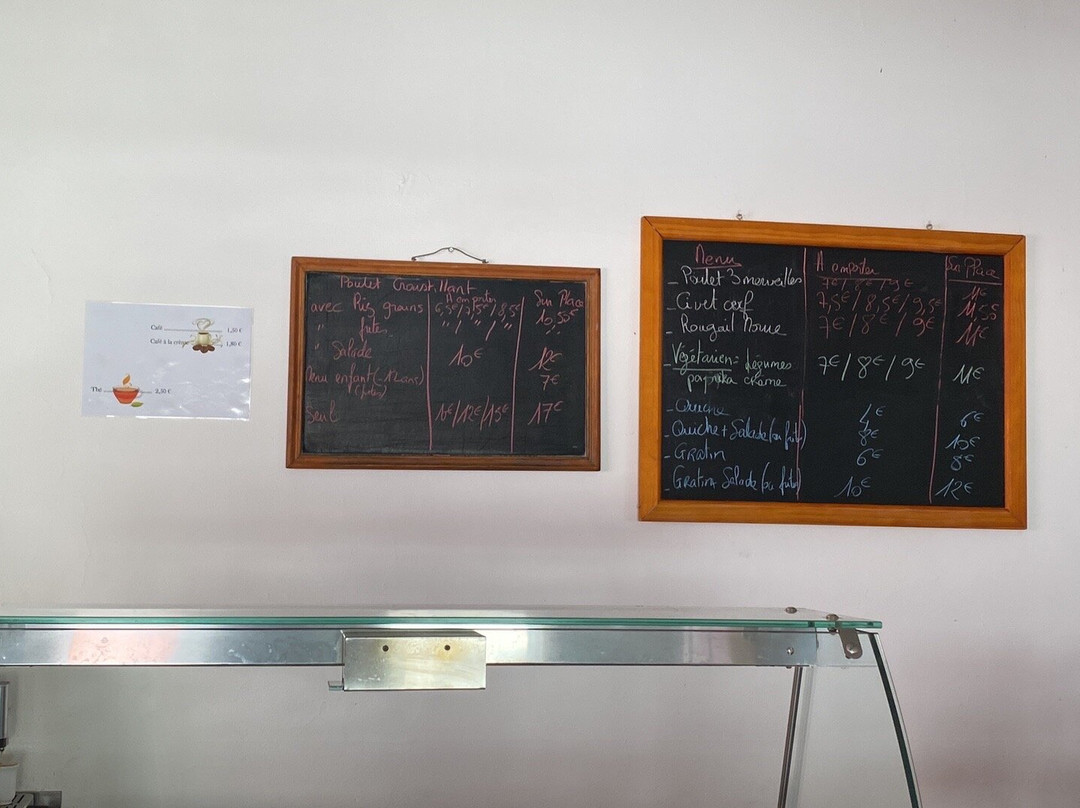 Café 1,50 €
Café à la crème 1,80 €
Thé 2,50 €
Poulet Croustillant
A emporter Sur Place
avec Riz grains 6,5€/7,5€/8,5€ 10,50€
" frites " / " / " "
" Salade 10€ 12€
Menu enfant (-12 ans) 7€
(frites)
Seul 10€/12€/15€ 17€
Menu A emporter Sur Place
- Poulet 3 merveilles 7€/8€/9€ 11€
- Civet cerf 7,5€/8,5€/9,5€ 11,50
- Rougail Morue 7€/8€/9€ 11€
- Végétarien: légumes 7€/8€/9€ 11€
paprika crème
- Quiche 4€ 6€
- Quiche + Salade (ou frites) 8€ 10€
- Gratin 6€ 8€
- Gratin Salade (ou frites) 10€ 12€